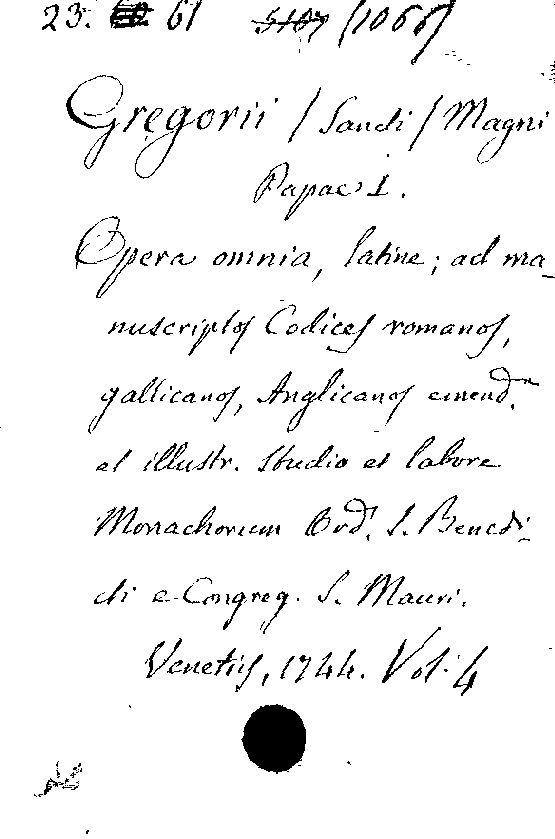 23. 61 5107 (1066)
Gregorii / Sancti / Magni
Papae I.
Opera omnia, latine; ad ma-
nuscriptos Codices romanos,
gallicanos, Anglicanos emend.
et illustr. studio et labore
Monachorum Ord. S. Benedi-
cti e Congreg. S. Mauri.
Venetiis, 1744. Vol. 4